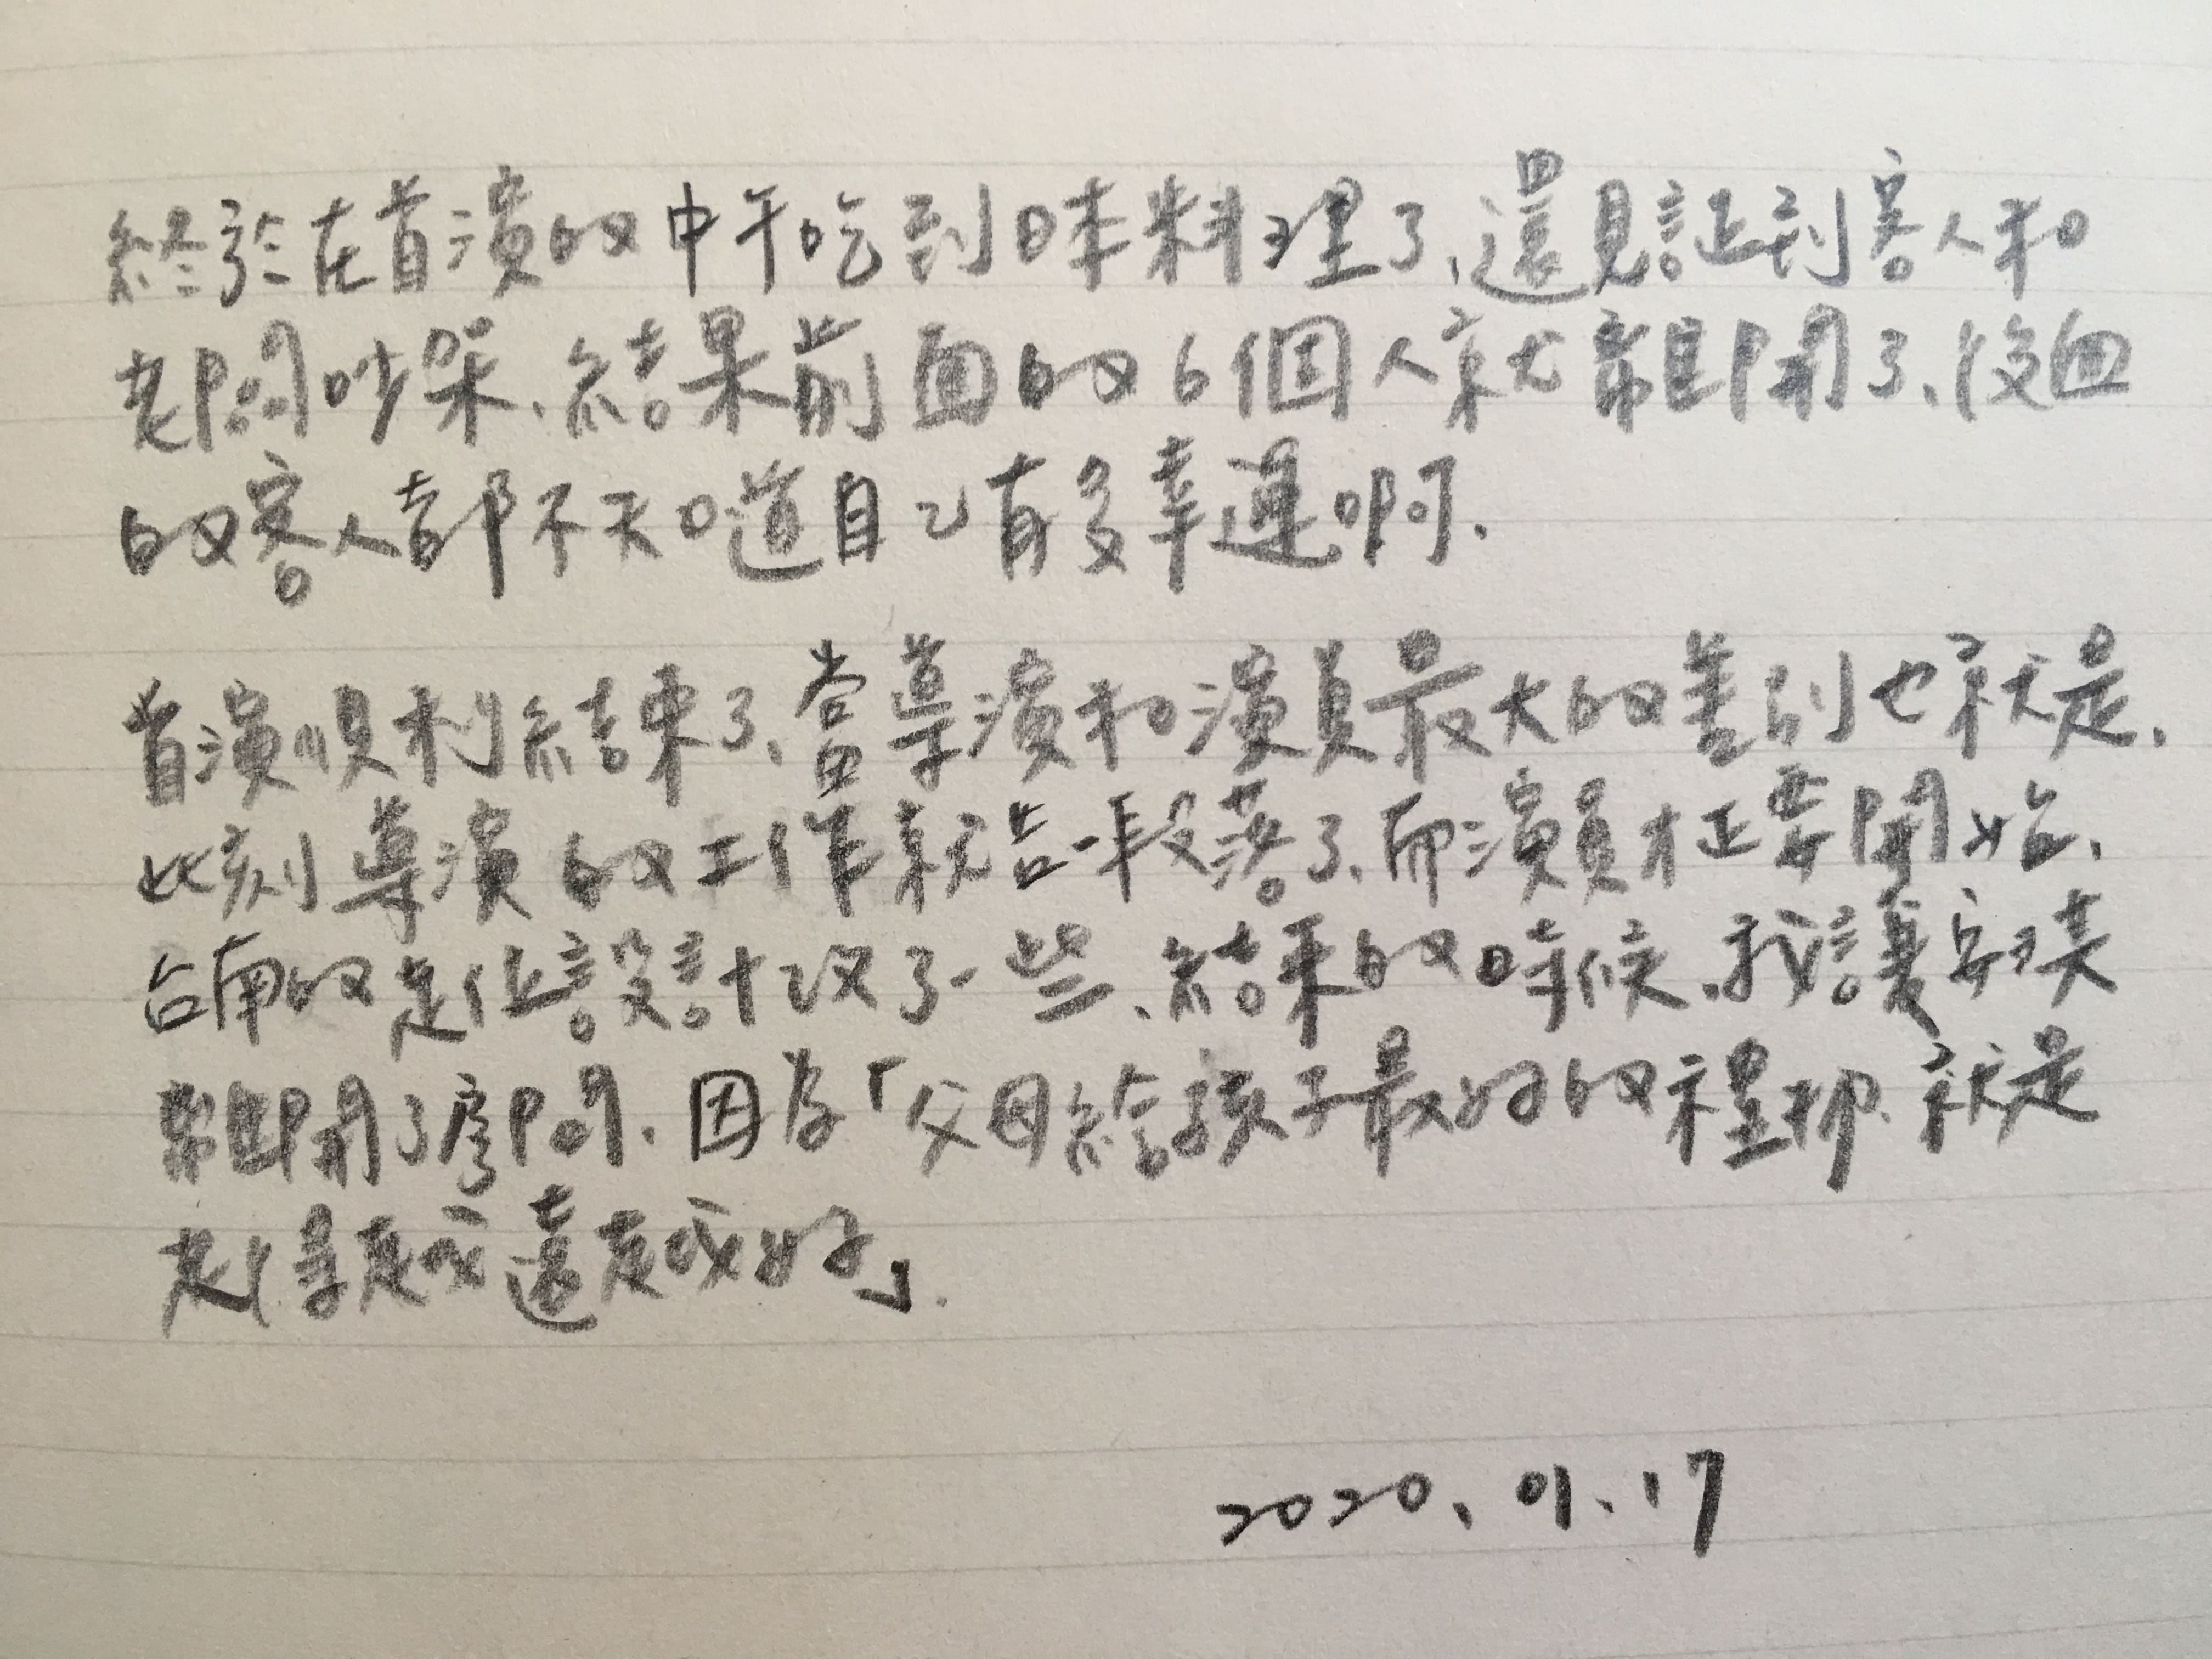 終於在首演的中午吃到味料理了、還見証到客人和
老闆吵架、結果前面的6個人就離開了、後面
的客人都不知道自己有多幸運啊.
首演順利結束了、當導演和演員最大的差別也就是、
此刻導演的工作就告一段落了、而演員才正要開始、
台南的走位設計改了一些、結束的時候、我讓安琪
離開了房間、因為「父母給孩子最好的禮物、就是
走得走或還走或好」.
2020、01、17